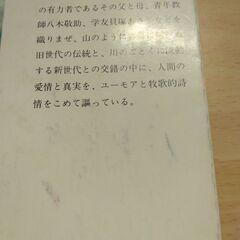 の有力者であるその父と母、青年教
師八木敬助、学友貝塚
織りまぜ、山のように
旧世代の伝統と、川のごとくに流動
する新世代との交錯の中に、人間の
愛情と真実を、ユーモアと牧歌的詩
情をこめて謳っている。